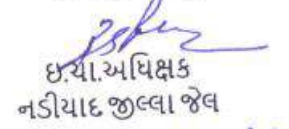 ઇ.ચા.અધિક્ષક
નડીયાદ જીલ્લા જેલ